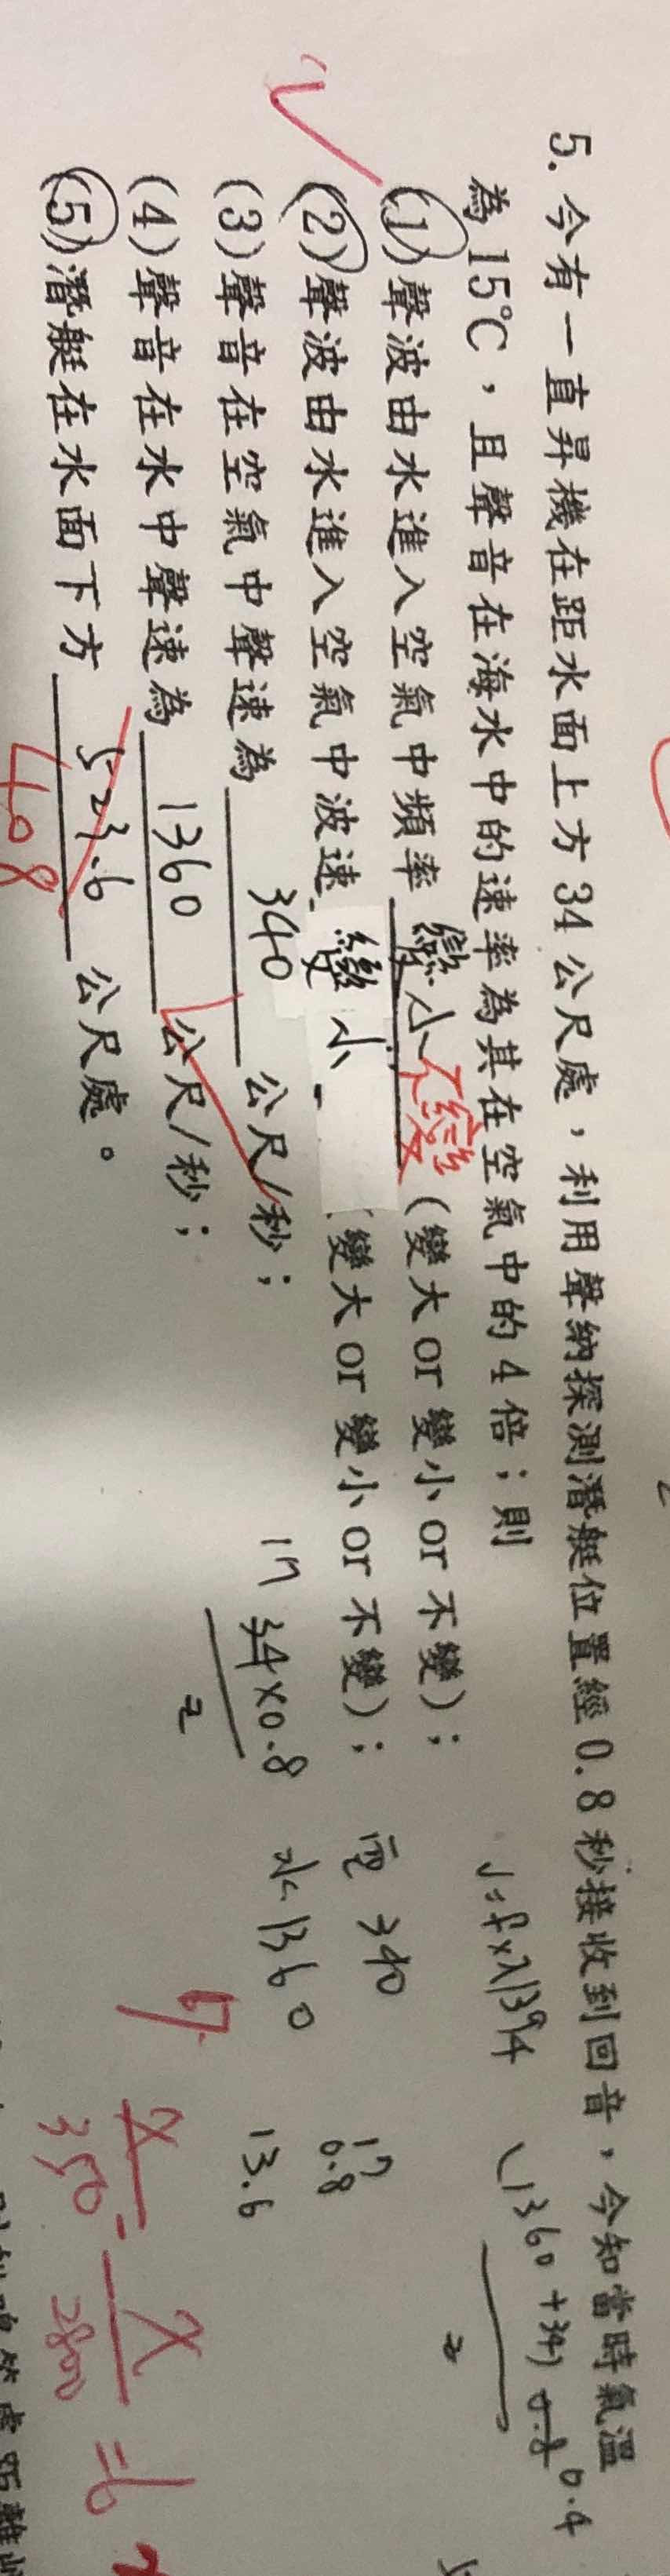 5. 今有一直昇機在距水面上方34公尺處，利用聲納探測潛艇位置經0.8秒接收到回音，今知當時氣溫
為15℃，且聲音在海水中的速率為其在空氣中的4倍；則
(1)聲波由水進入空氣中頻率 變小 不變 (變大or變小or不變)；
(2)聲波由水進入空氣中波速 變小 (變大or變小or不變)；
(3)聲音在空氣中聲速為 340 公尺/秒；
(4)聲音在水中聲速為 1360 公尺/秒；
(5)潛艇在水面下方 523.6 408 公尺處。
17
34×0.8
2
340
水 1360
17
0.8
13.6
V=f×λ 1394
(1360+34) 0.8 0.4
2
X
350
X
=6